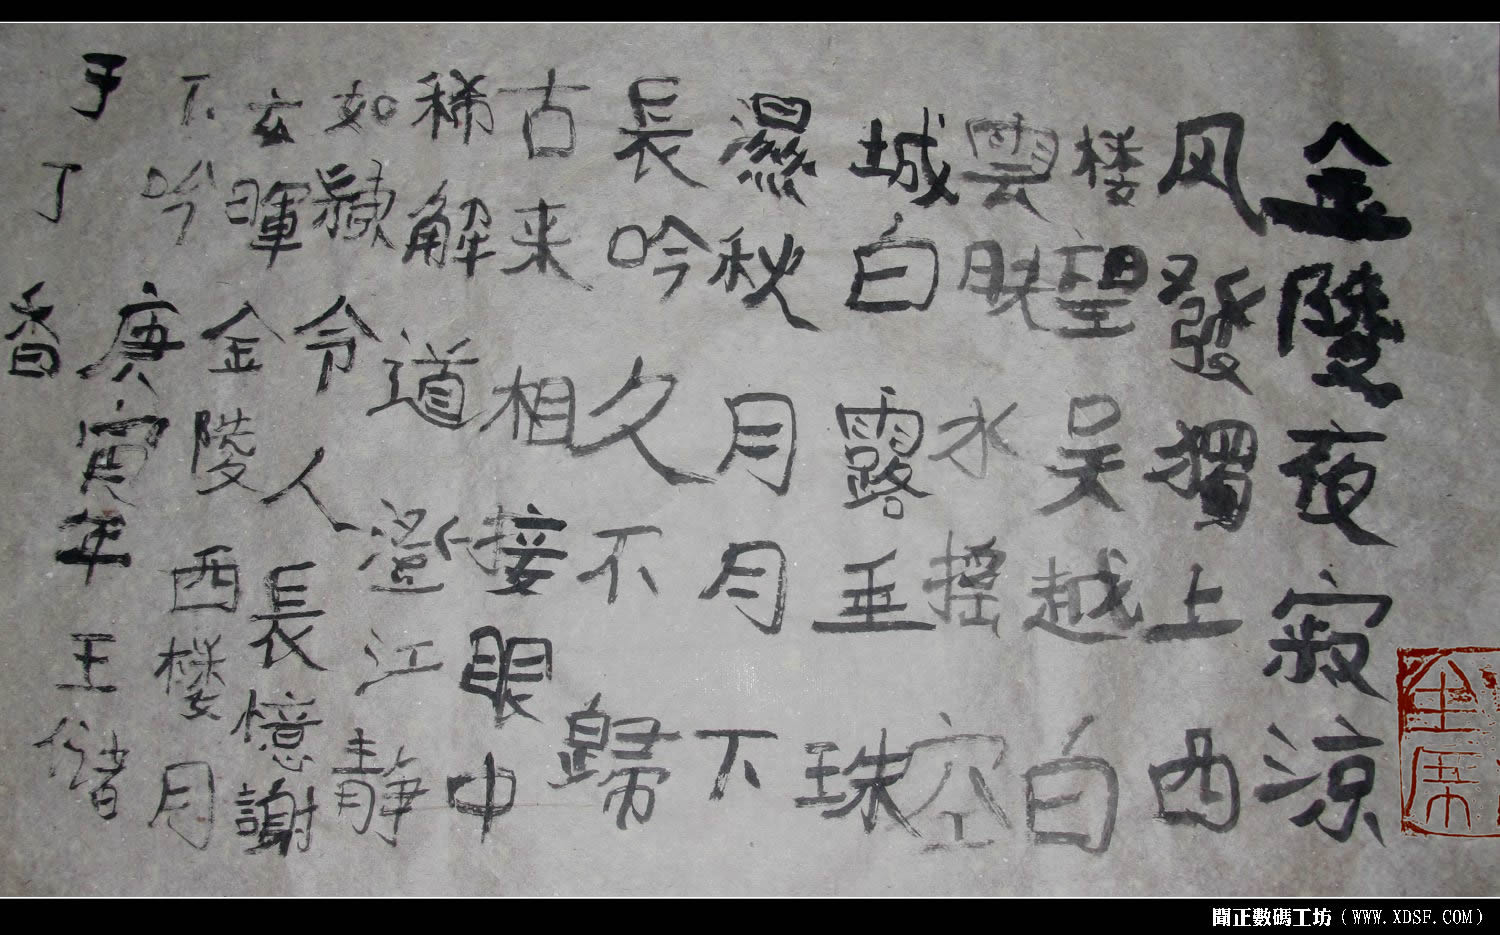 金陵夜寂涼
风發獨上西
楼望吴越白
雲映水摇空
城白露垂珠
濕秋月月下
長吟久不歸
古来相接眼中
稀解道澄江静
如令人長憶謝
玄暉金陵西楼月
下吟庚寅年王
于丁香
聞正數碼工坊（WWW.XDSF.COM）